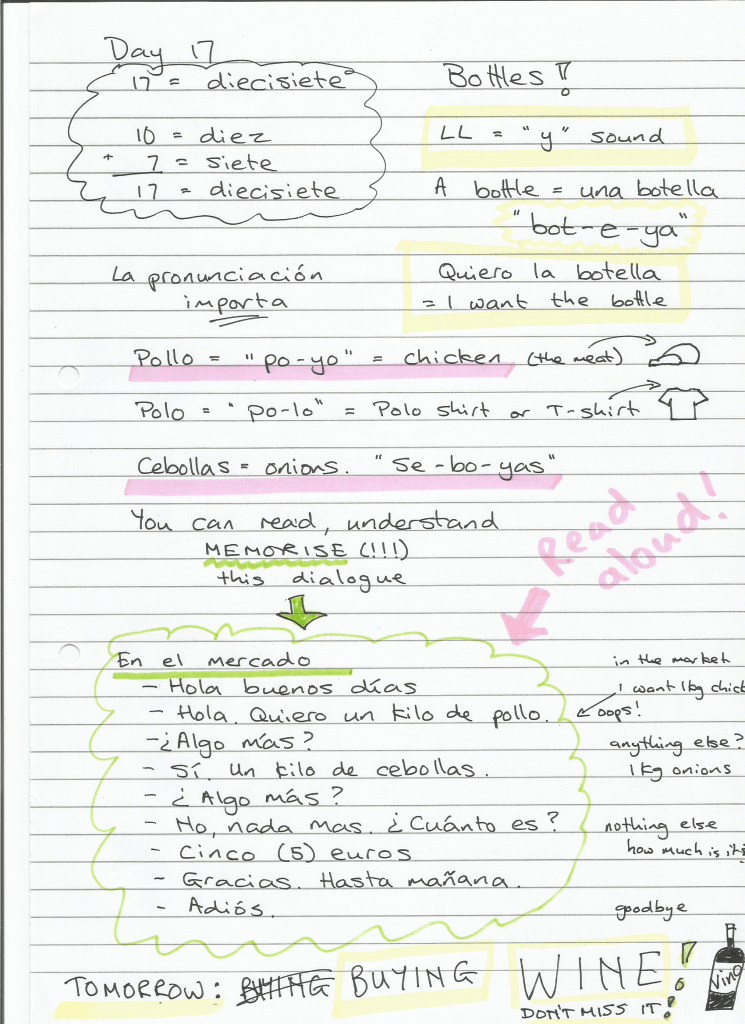 Day 17
17 = diecisiete
10 = diez
+ 7 = siete
17 = diecisiete
Bottles!
LL = "y" sound
A bottle = una botella
"bot-e-ya"
La pronunciación
importa
Quiero la botella
= I want the bottle
Pollo = "po-yo" = chicken (the meat)
Polo = "po-lo" = Polo shirt or T-shirt
Cebollas = onions. "Se-bo-yas"
You can read, understand
MEMORISE (!!!)
this dialogue
Read
aloud!
En el mercado
in the market
- Hola buenos días
I want 1kg chick
- Hola. Quiero un kilo de pollo.
oops!
- ¿Algo más?
anything else?
- Sí. Un kilo de cebollas.
1kg onions
- ¿Algo más?
- No, nada mas. ¿Cuánto es?
nothing else
how much is it?
- Cinco (5) euros
- Gracias. Hasta mañana.
- Adiós.
goodbye
TOMORROW: BUYING WINE!
DON'T MISS IT!
Vino